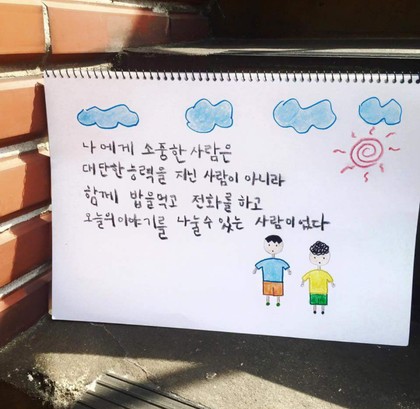 나에게 소중한 사람은
대단한 능력을 지닌 사람이 아니라
함께 밥을먹고 전화를하고
오늘의이야기를 나눌수 있는 사람이었다